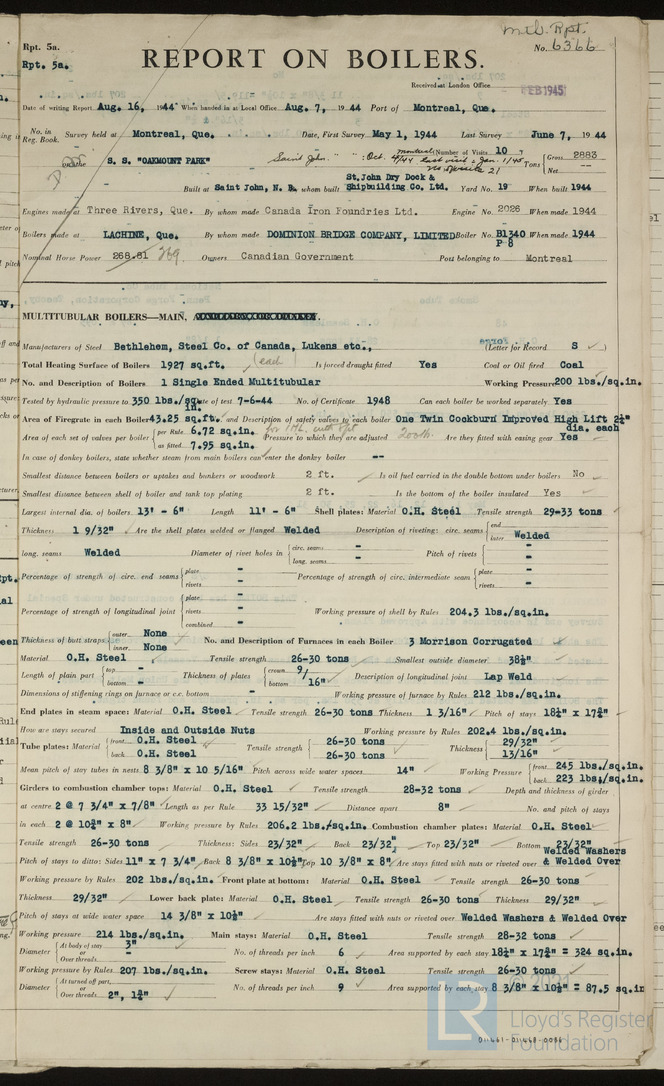 Mtl. Rpt.
No. 6366
Rpt. 5a.
Rpt. 5a.
REPORT ON BOILERS.
Received at London Office FEB 1945
Date of writing Report Aug. 16, 1944 When handed in at Local Office Aug. 7, 1944 Port of Montreal, Que.
No. in Reg. Book. Survey held at Montreal, Que. Date, First Survey May 1, 1944 Last Survey June 7, 1944
on the S. S. "OAKMOUNT PARK" Saint John " " : Oct. 4/44 last visit : Jan. 1/45 No. visits 21 Montreal (Number of Visits 10) Tons Gross 2883 Net
Built at Saint John, N. B. By whom built St.John Dry Dock & Shipbuilding Co. Ltd. Yard No. 19 When built 1944
Engines made at Three Rivers, Que. By whom made Canada Iron Foundries Ltd. Engine No. 2026 When made 1944
Boilers made at LACHINE, Que. By whom made DOMINION BRIDGE COMPANY, LIMITED Boiler No. B1340 P 8 When made 1944
Nominal Horse Power 268.81 269 Owners Canadian Government Port belonging to Montreal
MULTITUBULAR BOILERS—MAIN,
Manufacturers of Steel Bethlehem, Steel Co. of Canada, Lukens etc., (Letter for Record S)
Total Heating Surface of Boilers 1927 sq.ft. (each) Is forced draught fitted Yes Coal or Oil fired Coal
No. and Description of Boilers 1 Single Ended Multitubular Working Pressure 200 lbs./sq.in.
Tested by hydraulic pressure to 350 lbs./sq.in. Date of test 7-6-44 No. of Certificate 1948 Can each boiler be worked separately Yes
Area of Firegrate in each Boiler 43.25 sq.ft. No. and Description of safety valves to each boiler One Twin Cockburn Improved High Lift 2¼" dia. each
Area of each set of valves per boiler { per Rule 6.72 sq.in. as fitted 7.95 sq.in. Pressure to which they are adjusted 200 lb. Are they fitted with easing gear Yes
In case of donkey boilers, state whether steam from main boilers can enter the donkey boiler --
Smallest distance between boilers or uptakes and bunkers or woodwork 2 ft. Is oil fuel carried in the double bottom under boilers No
Smallest distance between shell of boiler and tank top plating 2 ft. Is the bottom of the boiler insulated Yes
Largest internal dia. of boilers 13' - 6" Length 11' - 6" Shell plates: Material O.H. Steel Tensile strength 29-33 tons
Thickness 1 9/32" Are the shell plates welded or flanged Welded Description of riveting: circ. seams { end inter. Welded
long. seams Welded Diameter of rivet holes in { circ. seams - long. seams - Pitch of rivets { - -
Percentage of strength of circ. end seams { plate - rivets - Percentage of strength of circ. intermediate seam { plate - rivets -
Percentage of strength of longitudinal joint { plate - rivets - combined - Working pressure of shell by Rules 204.3 lbs./sq.in.
Thickness of butt straps { outer None inner None No. and Description of Furnaces in each Boiler 3 Morrison Corrugated
Material O.H. Steel Tensile strength 26-30 tons Smallest outside diameter 38½"
Length of plain part { top - bottom - Thickness of plates { crown bottom 9/16" Description of longitudinal joint Lap Weld
Dimensions of stiffening rings on furnace or c.c. bottom - Working pressure of furnace by Rules 212 lbs./sq.in.
End plates in steam space: Material O.H. Steel Tensile strength 26-30 tons Thickness 1 3/16" Pitch of stays 18½" x 17½"
How are stays secured Inside and Outside Nuts Working pressure by Rules 202.4 lbs./sq.in.
Tube plates: Material { front O.H. Steel back O.H. Steel Tensile strength { 26-30 tons 26-30 tons Thickness { 29/32" 13/16"
Mean pitch of stay tubes in nests 8 3/8" x 10 5/16" Pitch across wide water spaces 14" Working Pressure { front 245 lbs./sq.in. back 223 lbs./sq.in.
Girders to combustion chamber tops: Material O.H. Steel Tensile strength 28-32 tons Depth and thickness of girder
at centre 2 @ 7 3/4" x 7/8" Length as per Rule 33 15/32" Distance apart 8" No. and pitch of stays
in each 2 @ 10¾" x 8" Working pressure by Rules 206.2 lbs./sq.in. Combustion chamber plates: Material O.H. Steel
Tensile strength 26-30 tons Thickness: Sides 23/32" Back 23/32" Top 23/32" Bottom 23/32"
Pitch of stays to ditto: Sides 11" x 7 3/4" Back 8 3/8" x 10½" Top 10 3/8" x 8" Are stays fitted with nuts or riveted over Welded Washers & Welded Over
Working pressure by Rules 202 lbs./sq.in. Front plate at bottom: Material O.H. Steel Tensile strength 26-30 tons
Thickness 29/32" Lower back plate: Material O.H. Steel Tensile strength 26-30 tons Thickness 29/32"
Pitch of stays at wide water space 14 3/8" x 10½" Are stays fitted with nuts or riveted over Welded Washers & Welded Over
Working pressure 214 lbs./sq.in. Main stays: Material O.H. Steel Tensile strength 28-32 tons
Diameter { At body of stay 3" or Over threads - No. of threads per inch 6 Area supported by each stay 18½" x 17¾" = 324 sq.in.
Working pressure by Rules 207 lbs./sq.in. Screw stays: Material O.H. Steel Tensile strength 26-30 tons
Diameter { At turned off part, or Over threads 2", 1¾" No. of threads per inch 9 Area supported by each stay 8 3/8" x 10½" = 87.5 sq.in
LR
© 2021
Lloyd's Register
Foundation